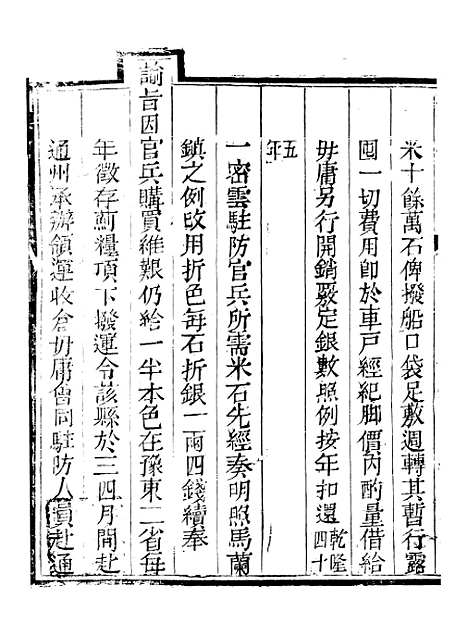 米十餘萬石俾撥船口袋足敷週轉其暫行露
囤一切費用卽於車戸經紀脚價內酌量借給
毋庸另行開銷覈定銀數照例按年扣還乾隆四十
五年
一密雲駐防官兵所需米石先經奏明照馬蘭
鎮之例改用折色每石折銀一兩四錢續奉
諭旨因官兵購買維艱仍給一半本色在豫東二省每
年徵存薊糧項下撥運令該縣於三四月間赴
通州承辦領運收倉毋庸會同駐防人員赴通